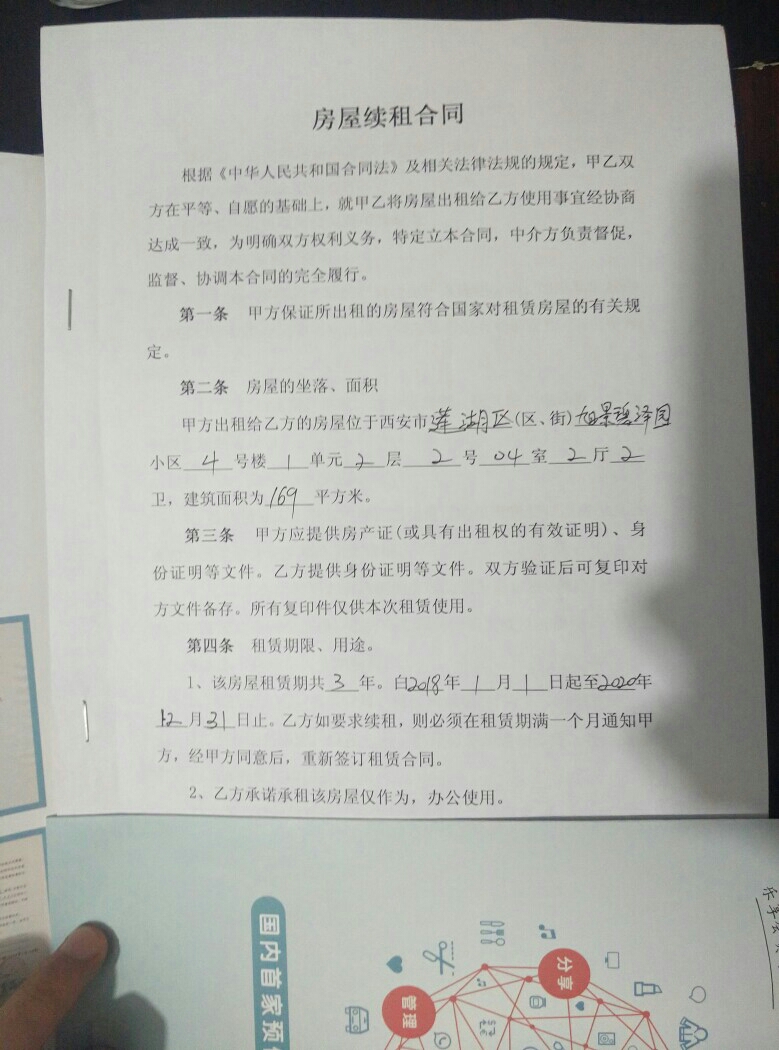 房屋续租合同
根据《中华人民共和国合同法》及相关法律法规的规定，甲乙双
方在平等、自愿的基础上，就甲乙将房屋出租给乙方使用事宜经协商
达成一致，为明确双方权利义务，特定立本合同，中介方负责督促，
监督、协调本合同的完全履行。
第一条 甲方保证所出租的房屋符合国家对租赁房屋的有关规
定。
第二条 房屋的坐落、面积
甲方出租给乙方的房屋位于西安市莲湖区(区、街)旭景碧泽园
小区 4 号楼 1 单元 2 层 2 号 04 室 2 厅 2
卫，建筑面积为 169 平方米。
第三条 甲方应提供房产证(或具有出租权的有效证明)、身
份证明等文件。乙方提供身份证明等文件。双方验证后可复印对
方文件备存。所有复印件仅供本次租赁使用。
第四条 租赁期限、用途。
1、该房屋租赁期共 3 年。自2018年 1 月 1 日起至2020年
12月31日止。乙方如要求续租，则必须在租赁期满一个月通知甲
方，经甲方同意后，重新签订租赁合同。
2、乙方承诺承租该房屋仅作为，办公使用。
国内首家预
分享
管理